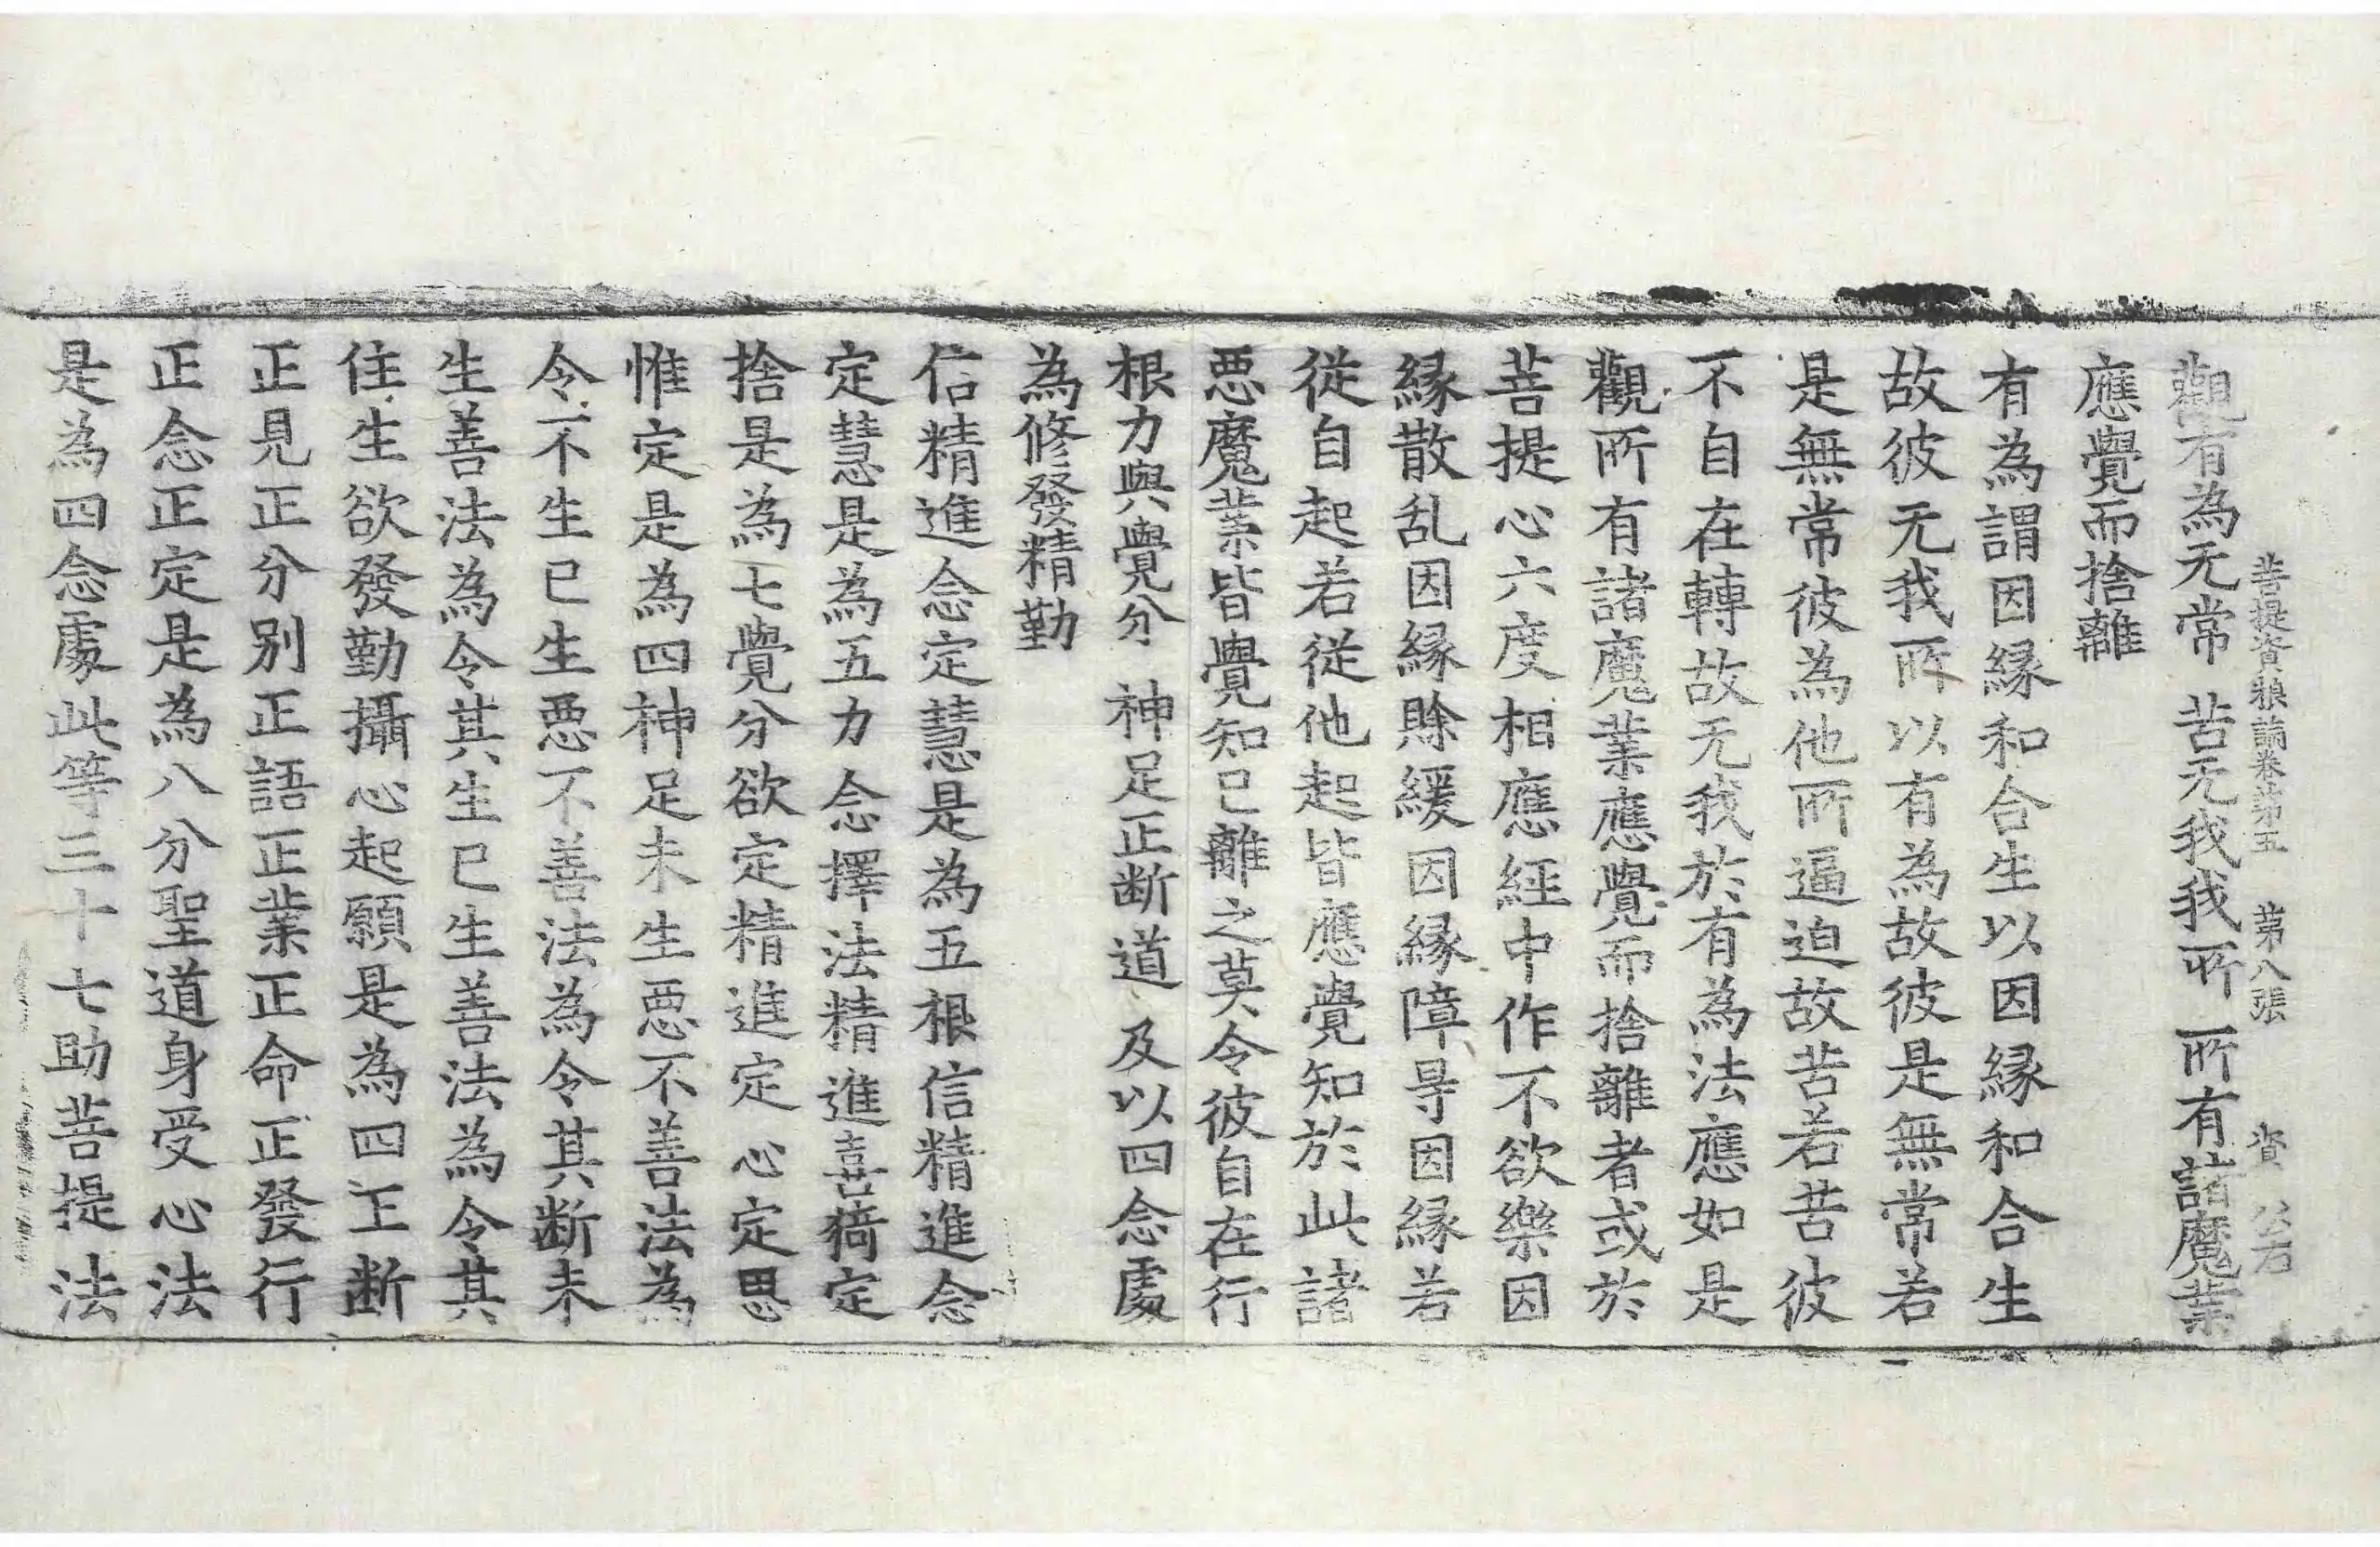 菩提資粮論卷第五 第八張 資 公右
觀有為无常 苦无我我所 所有諸魔業
應覺而捨離
有為謂因縁和合生以因縁和合生
故彼无我所以有為故彼是無常若
是無常彼為他所逼迫故苦若苦彼
不自在轉故无我於有為法應如是
觀所有諸魔業應覺而捨離者或於
菩提心六度相應經中作不欲樂因
縁散乱因縁賒緩因縁障㝵因縁若
從自起若從他起皆應覺知於此諸
惡魔業皆覺知已離之莫令彼自在行
根力與覺分 神足正断道 及以四念處
為修發精勤
信精進念定慧是為五根信精進念
定慧是為五力念擇法精進喜猗定
捨是為七覺分欲定精進定心定思
惟定是為四神足未生惡不善法為
令不生已生惡不善法為令其断未
生善法為令其生已生善法為令其
住生欲發勤攝心起願是為四正断
正見正分別正語正業正命正發行
正念正定是為八分聖道身受心法
是為四念處此等三十七助菩提法